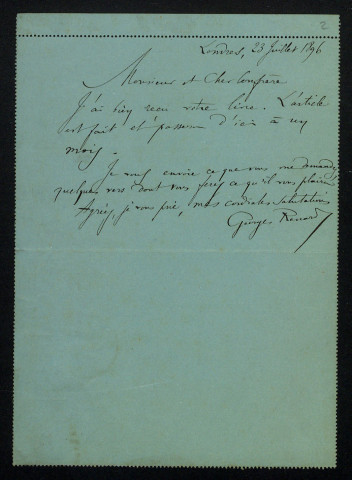 2
Londres, 23 Juillet 1896
Monsieur et Cher Confrère
J'ai bien reçu votre livre. L'article
est fait et passera d'ici à un
mois.
Je vous envoie ce que vous me demandez,
quelques vers dont vous ferez ce qu'il vous plaira.
Agréez, je vous prie, mes cordiales salutations
Georges Renard